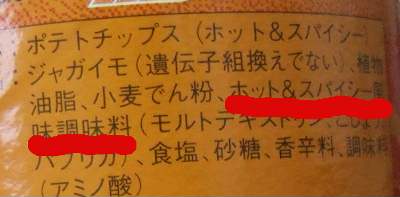 ポテトチップス（ホット＆スパイシー）
ジャガイモ（遺伝子組換えでない）、植物
油脂、小麦でん粉、ホット＆スパイシー風
味調味料（モルトデキストリン、こしょう、
パプリカ）、食塩、砂糖、香辛料、調味料
（アミノ酸）